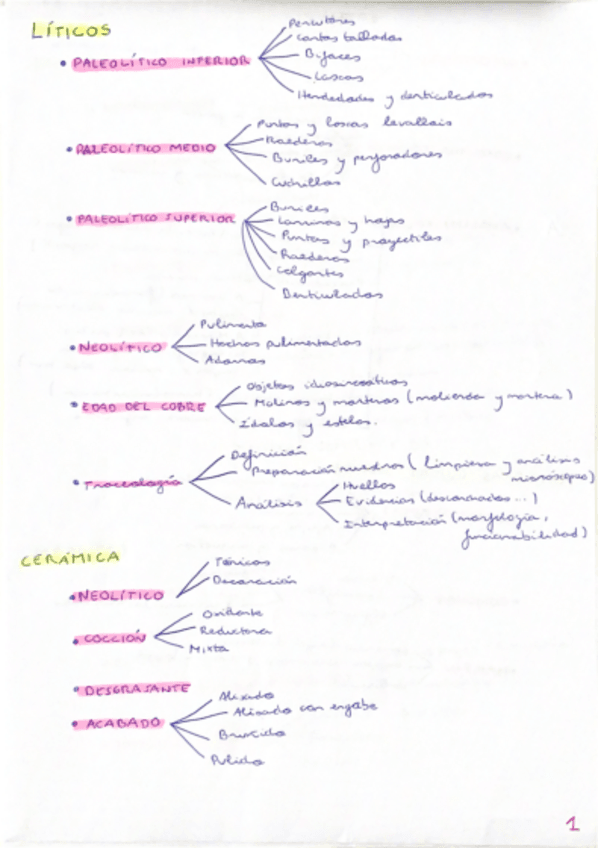 LÍTICOS
• PALEOLÍTICO INFERIOR
Percutores
Cantos tallados
Bifaces
Lascas
Hendedores y denticulados
• PALEOLÍTICO MEDIO
Puntas y lascas levallois
Raederas
Buriles y perforadores
Cuchillos
• PALEOLÍTICO SUPERIOR
Buriles
Laminas y hojas
Puntas y proyectiles
Raederas
Colgantes
Denticulados
• NEOLÍTICO
Pulimento
Hachas pulimentadas
Adornos
• EDAD DEL COBRE
Objetos ideosincráticos
Molinos y morteros (molienda y mortero)
Ídolos y estelas.
• Traceología
Definición
Preparación muestras (limpieza y análisis
microscópico)
Análisis
Huellas
Evidencias (desconchados...)
Interpretación (morfología,
funcionabilidad)
CERÁMICA
• NEOLÍTICO
Técnicas
Decoración
• COCCIÓN
Oxidante
Reductora
Mixta
• DESGRASANTE
• ACABADO
Alisado
Alisado con engobe
Bruñido
Pulido
1